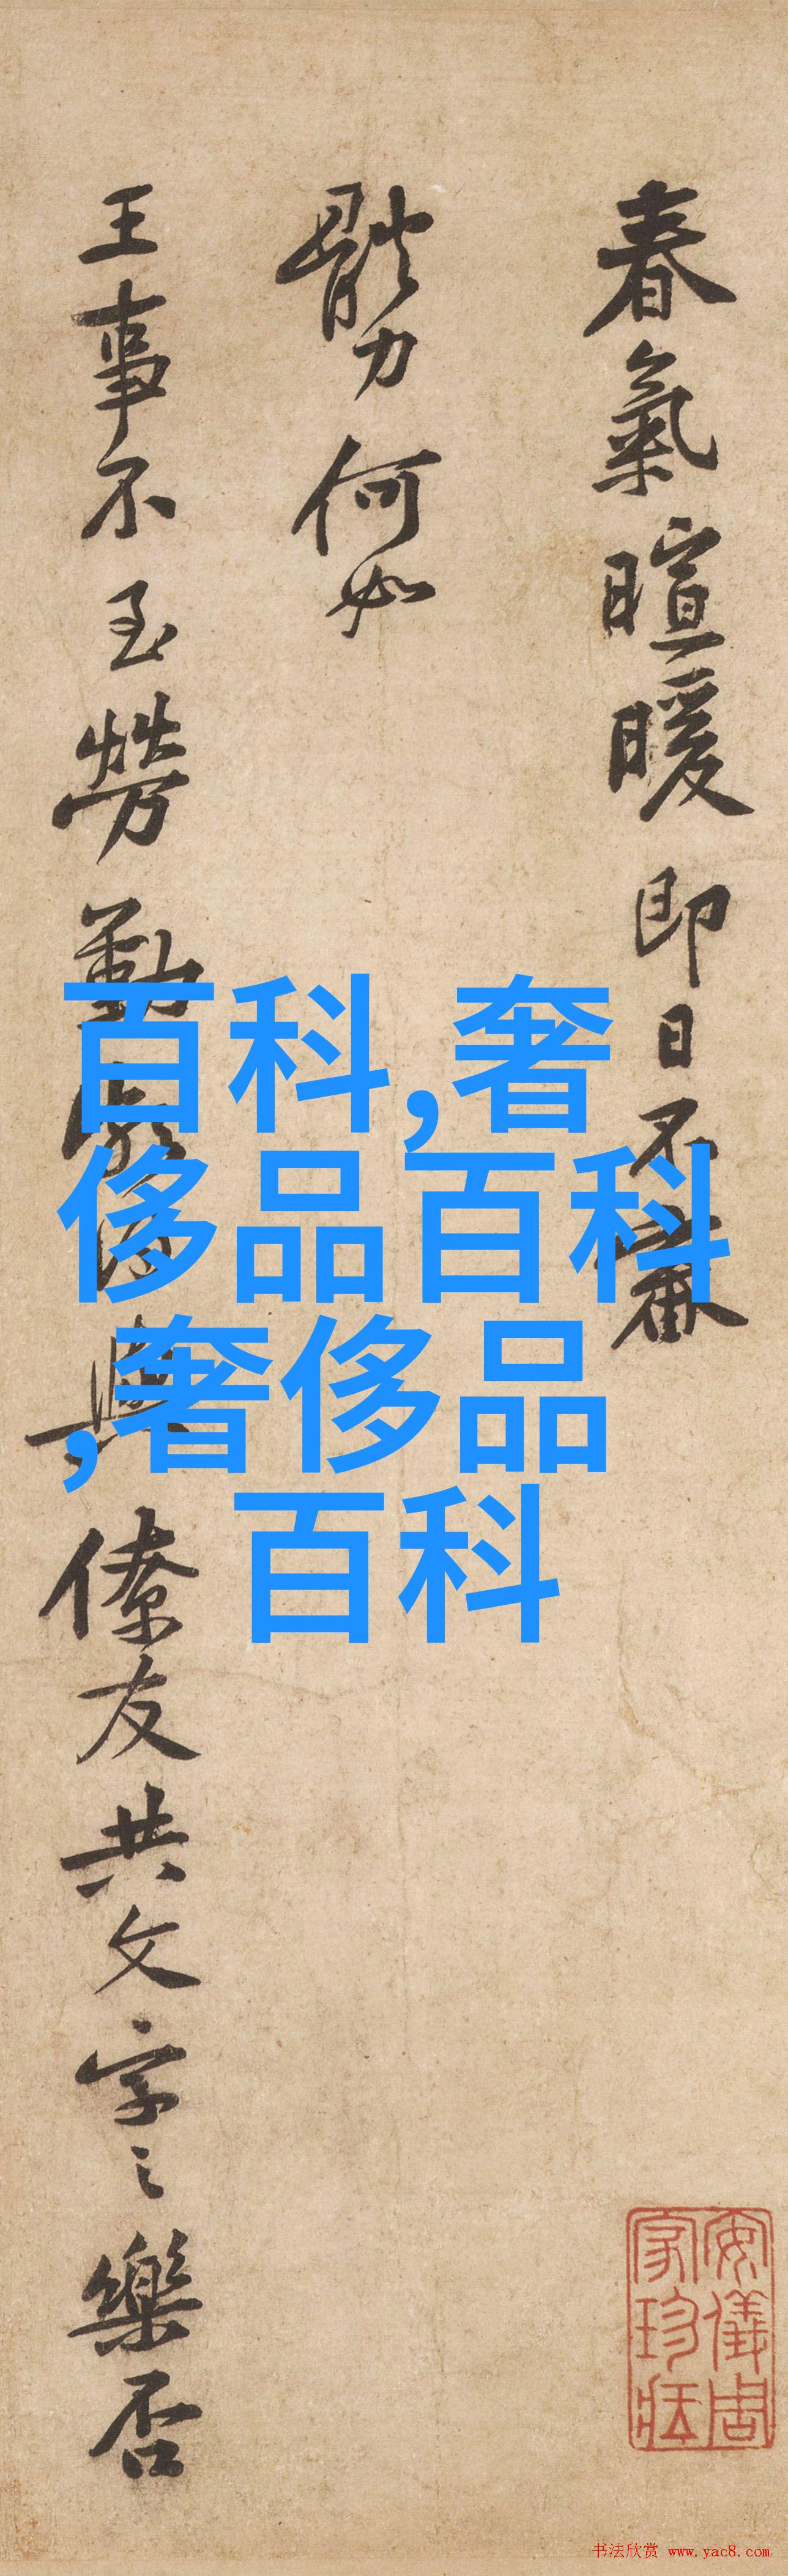 春氣暄暖即日不審
體力何如
王事不至勞勤
與僚友共文字之樂否
百科,奢
侈品百科
,奢侈品
百科
安儀周家珍藏
书法欣赏 www.yac8.com